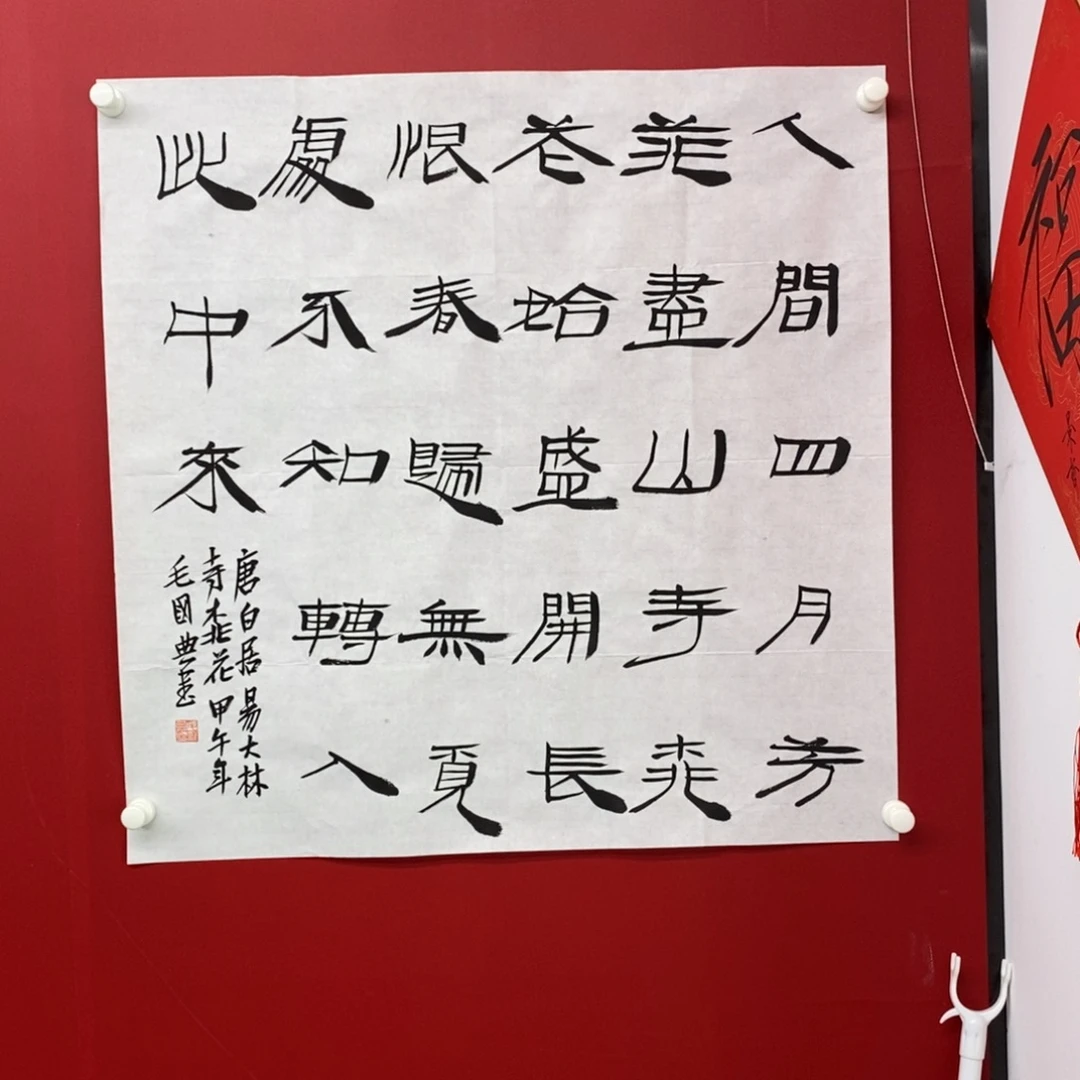 人間四月芳
菲盡山寺桃
花始盛開長
恨春歸無覓
處不知轉入
此中來
唐白居易大林
寺桃花甲午年
毛國典書